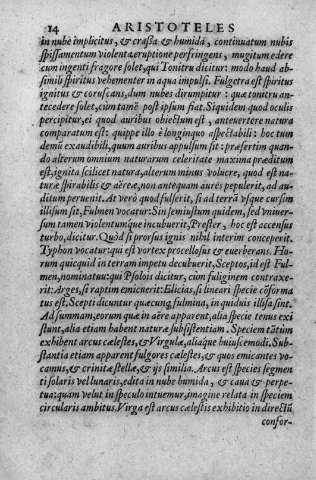 14 ARISTOTELES
in nube implicitus, & crassa & humida, continuatum nubis
spissamentum violenta eruptione perfringens, mugitum edere
cum ingenti fragore solet, qui Tonitru dicitur: modo haud ab-
simili spiritus vehementer in aqua impulsi. Fulgetra est spiritus
ignitus & coruscans, dum nubes dirumpitur: quæ tonitru an-
tecedere solet, cum tamẽ post ipsum fiat. Siquidem quod oculis
percipitur, ei quod auribus obiectum est, anteuertere natura
comparatum est: quippe illo è longinquo aspectabili: hoc tum
demũ exaudibili, quum auribus appulsum sit: præsertim quan-
do alterum omnium naturarum celeritate maxima præditum
est, ignita scilicet natura, alterum minus volucre, quod est na-
turæ spirabilis & aëreæ, non antequam aureis pepulerit, ad au-
ditum peruenit. At verò quod fulserit, si ad terrã vsque cursim
illisum sit, Fulmen vocatur: Sin semiustum quidem, sed vniuer-
sum tamen violentumque incubuerit, Prester, hoc est accensus
turbo, dicitur. Quòd si prorsus ignis nihil interim conceperit.
Typhon vocatur: qui est vortex procellosus & euerberans. Ho-
rum quicquid in terram impetu decubuerit, Sceptos, id est Ful-
men, nominatur: qui Psolois dicitur, cùm fuliginem contraxe-
rit: Arges, si raptim emicuerit: Elicias, si lineari specie cõforma
tus est. Scepti dicuntur quæcunq; fulmina, in quiduis illisa sint.
Ad summam, eorum quæ in aëre apparent, alia specie tenus exi
stunt, alia etiam habent naturæ subsistentiam. Speciem tãtùm
exhibent arcus cælestes, & Virgulæ, aliaque huiuscemodi. Sub-
stantia etiam apparent fulgores cælestes, & quos emicantes vo-
camus, & crinitæ stellæ, & ijs similia. Arcus est species segmen
ti solaris vel lunaris, edita in nube humida, & caua & perpe-
tua: quam velut in speculo intuemur, imagine relata in speciem
circularis ambitus. Virga est arcus cælestis exhibitio in directũ
confor-